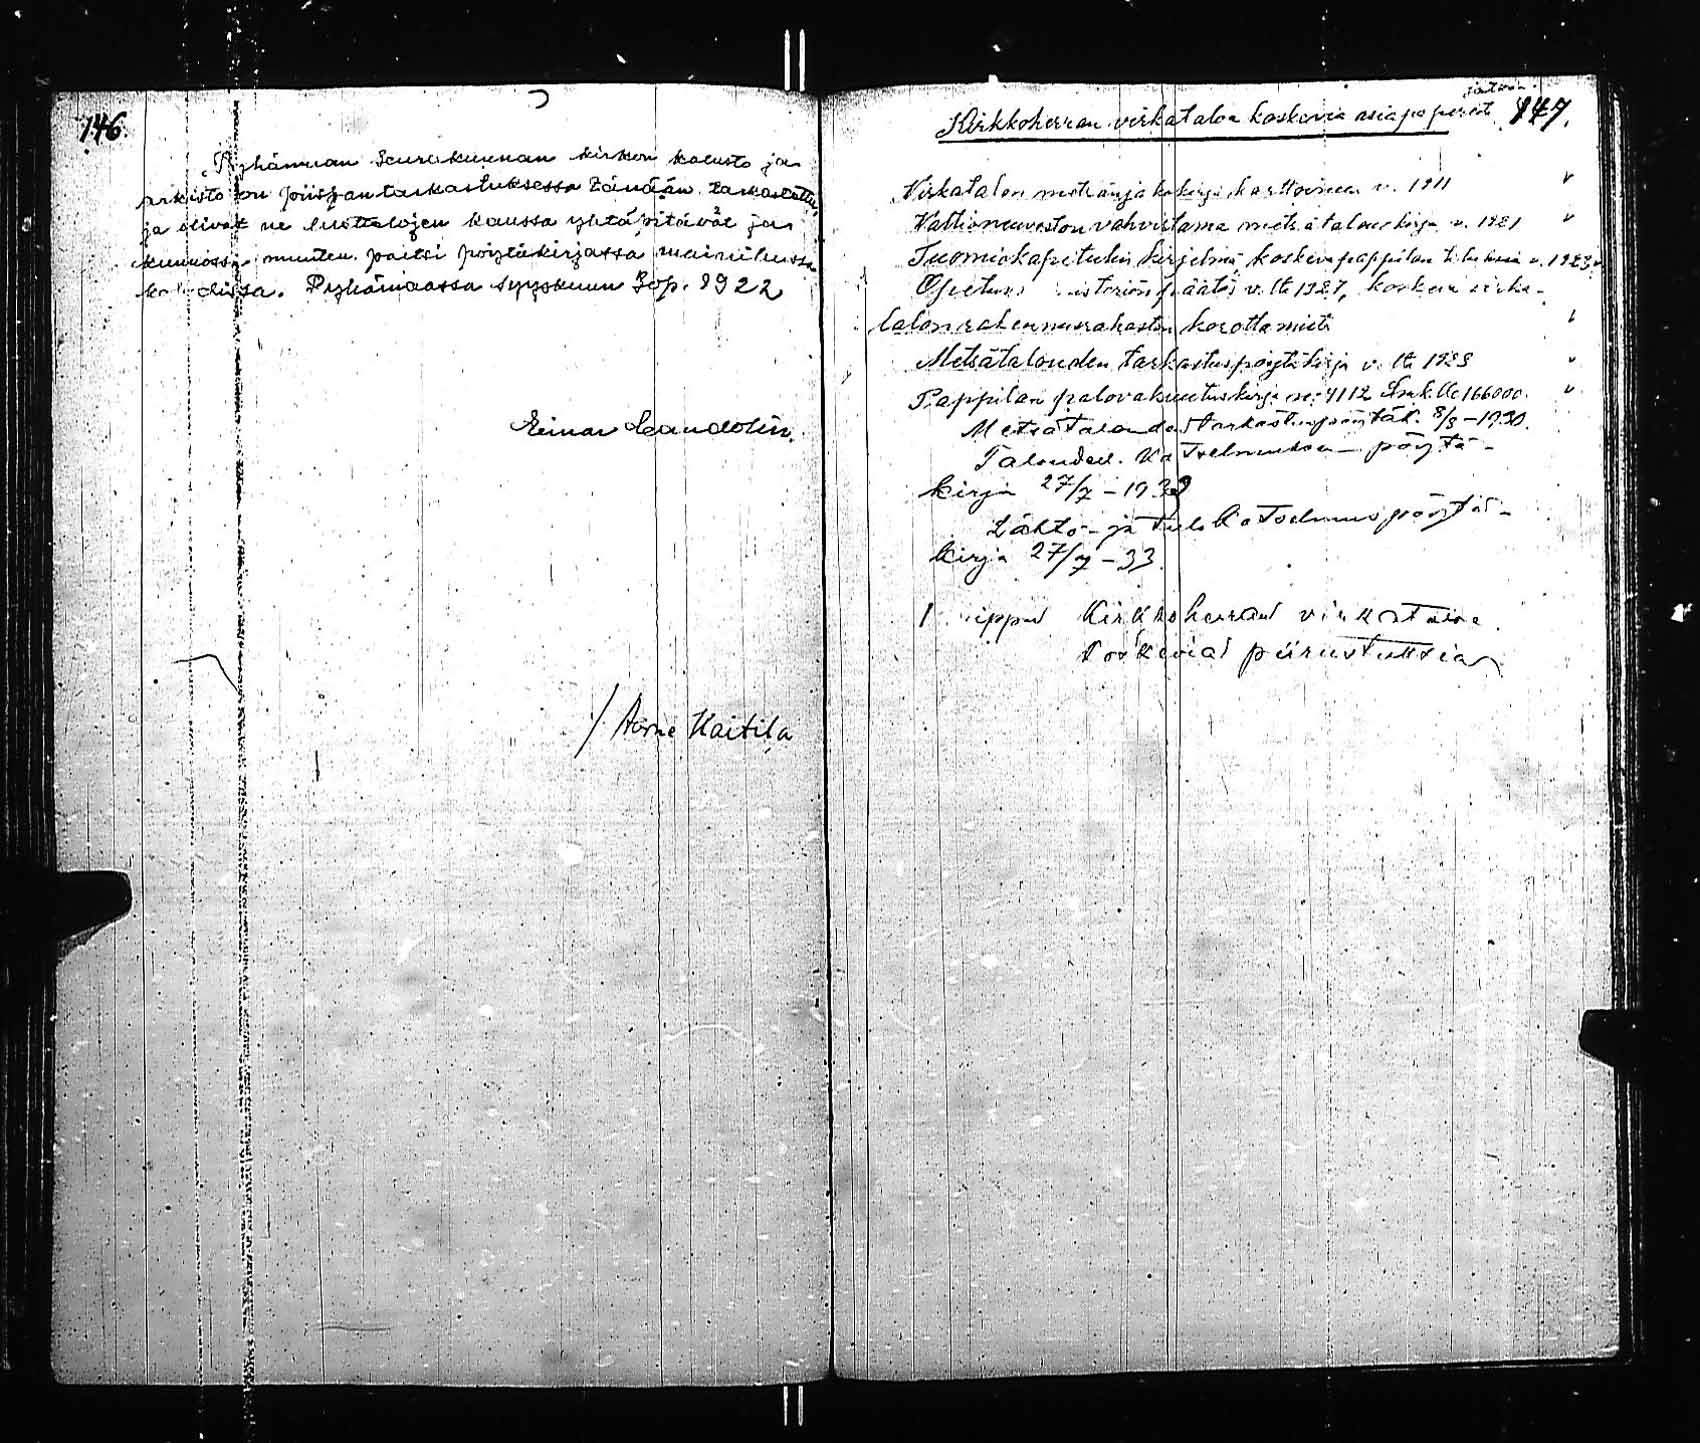 146.
Pyhämaan Seurakunnan kirkon kalusto ja
arkisto on piispantarkastuksessa tänään tarkastettu,
ja olivat ne luettelojen kanssa yhtäpitävät ja
kunnossa muuten paitsi pöytäkirjassa mainituissa
kohdissa. Pyhämaassa syyskuun 30 p. 1922
Einar Candolin.
/ Aarne Kaitila
147.
Kirkkoherran virkataloa koskevia asiapapereita
Virkatalon metsänjakokirja karttoineen v. 1911 v
Valtioneuvoston vahvistama metsätalouskirja v. 1921 v
Tuomiokapitulin kirjelmä koskeva pappilan v. 1923 v
Opetusministeriön päätös v. lta 1927, koskeva virka-
talon rakennusrahaston korottamista
Metsätalouden tarkastuspöytäkirja v. lta 1923 v
Pappilan palovakuutuskirja no: 4112 Smk. 166000. v
Metsätaloudentarkastuspöytäk. 8/8 - 1930.
Talouden katselmuksen pöytä-
kirja 27/7 - 1933
Lähtö- ja tulokatselmuspöytä-
kirja 27/7 - 33.
1 nippu Kirkkoherran virkataloa
koskevia piirustuksia